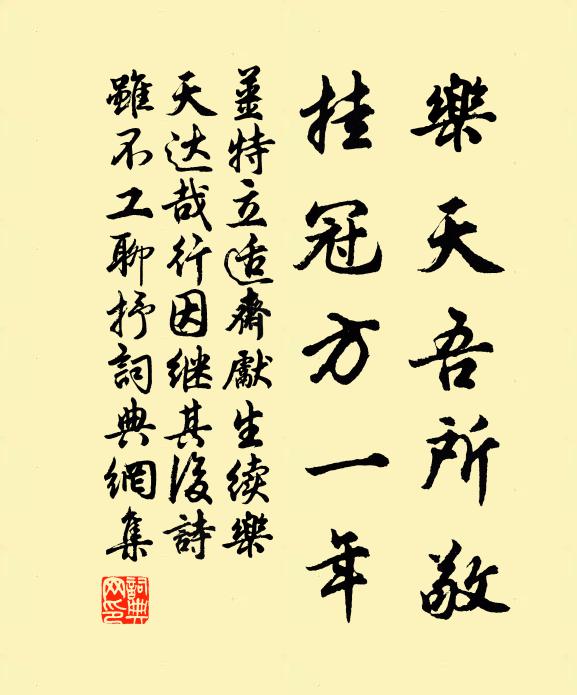 樂天吾所敬
挂冠方一年
姜特立适齋獻生续樂
天达哉行因继其後詩
雖不工聊抒詞典網集
詞典网印